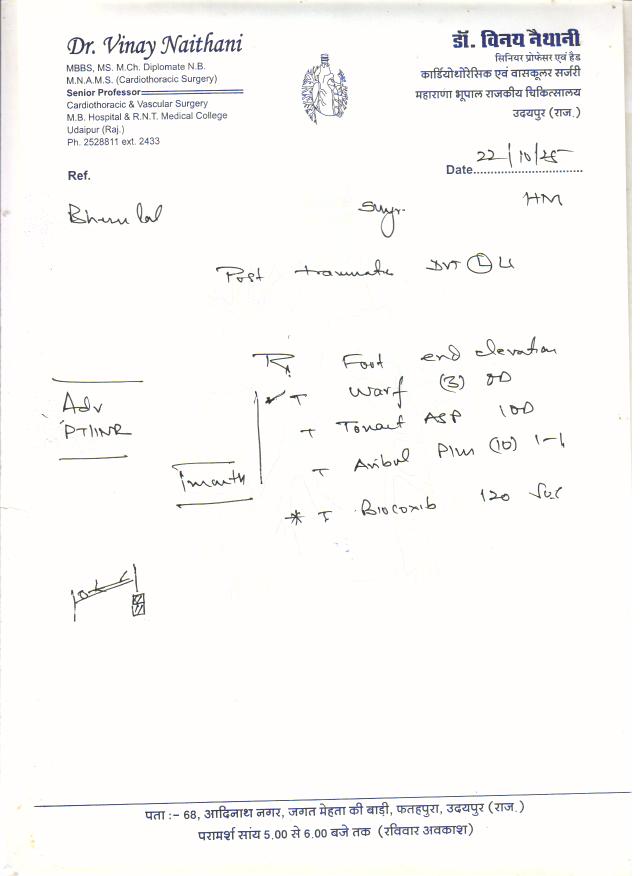 Dr. Vinay Naithani
MBBS, MS. M.Ch. Diplomate N.B.
M.N.A.M.S. (Cardiothoracic Surgery)
Senior Professor
Cardiothoracic & Vascular Surgery
M.B. Hospital & R.N.T. Medical College
Udaipur (Raj.)
Ph. 2528811 ext. 2433
डॉ. विनय नैथानी
सिनियर प्रोफेसर एवं हैड
कार्डियोथोरेसिक एवं वासकूलर सर्जरी
महाराणा भूपाल राजकीय चिकित्सालय
उदयपुर (राज.)
Date 22/10/25
Ref.
HM
Post traumatic DVT (L) LL
Rx Foot end elevation
T Warf (3) OD
Adv
PT/INR
T ASP 1 OD
T Plus (10) 1-1
1 month
* T Biocoxib 120 SOS
पता :– 68, आदिनाथ नगर, जगत मेहता की बाड़ी, फतहपुरा, उदयपुर (राज.)
परामर्श सांय 5.00 से 6.00 बजे तक (रविवार अवकाश)